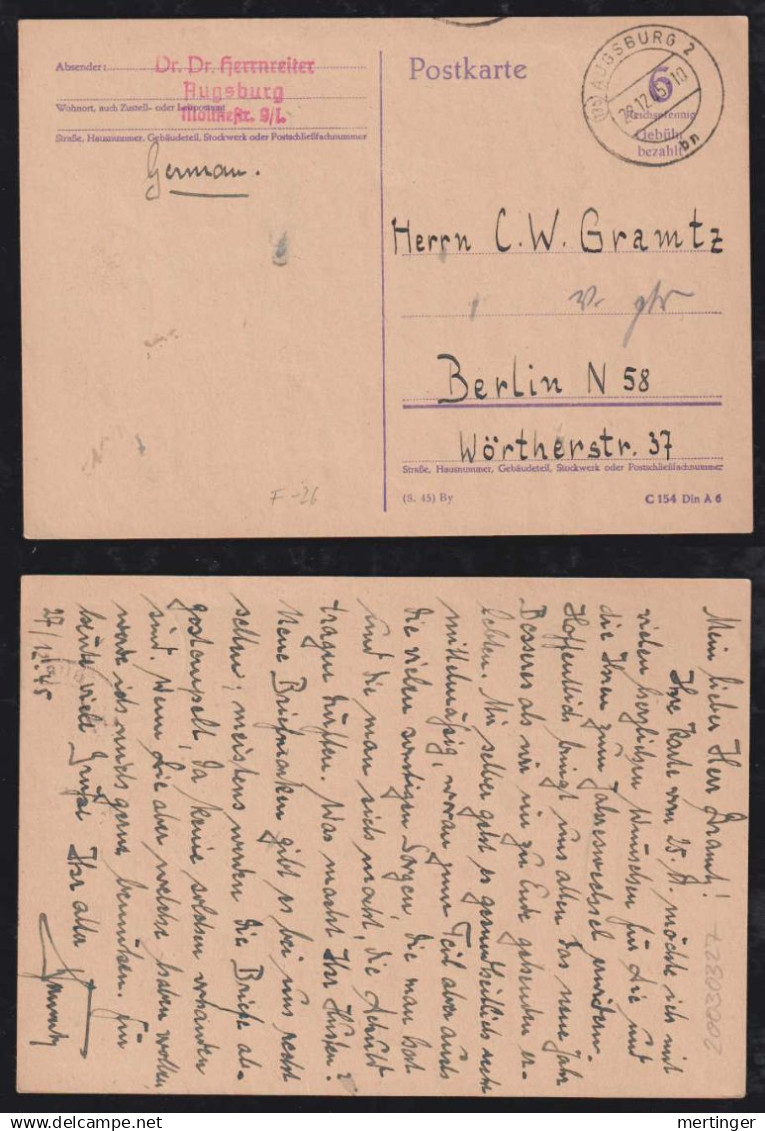 Absender:
Dr. Dr. Herrnreiter
Augsburg
Wohnort, auch Zustell- oder Leitpostamt
Moltkestr. 9/I.
Straße, Hausnummer, Gebäudeteil, Stockwerk oder Postschließfachnummer
German.
F-26
Postkarte
AUGSBURG 2
28.12.45 10
bn
6
Reichspfennig
Gebühr
bezahlt
Herrn C. W. Gramtz
Berlin N 58
Wörtherstr. 37
Straße, Hausnummer, Gebäudeteil, Stockwerk oder Postschließfachnummer
(S. 45) By
C 154 Din A 6
Mein lieber Herr Gramtz!
Ihre Karte vom 25. 11. möchte ich mit
vielen herzlichen Wünschen für Sie und
die Ihren zum Jahreswechsel erwidern.
Hoffentlich bringt uns allen das neue Jahr
Besseres als wir im zu Ende gehenden er-
lebten. Mir selber geht es gesundheitlich recht
mittelmäßig, woran zum Teil aber auch
die vielen sonstigen Sorgen, die man hat
und die man sich macht, die Schuld
tragen dürften. Was macht Ihr Husten?
Neue Briefmarken gibt es bei uns recht
selten; meistens werden die Briefe ab-
gestempelt, da keine solchen vorhanden
sind. Wenn Sie aber welche haben wollen,
werde ich mich gerne bemühen. Für
heute viele Grüße Ihr alter
27/12.45
mertinger